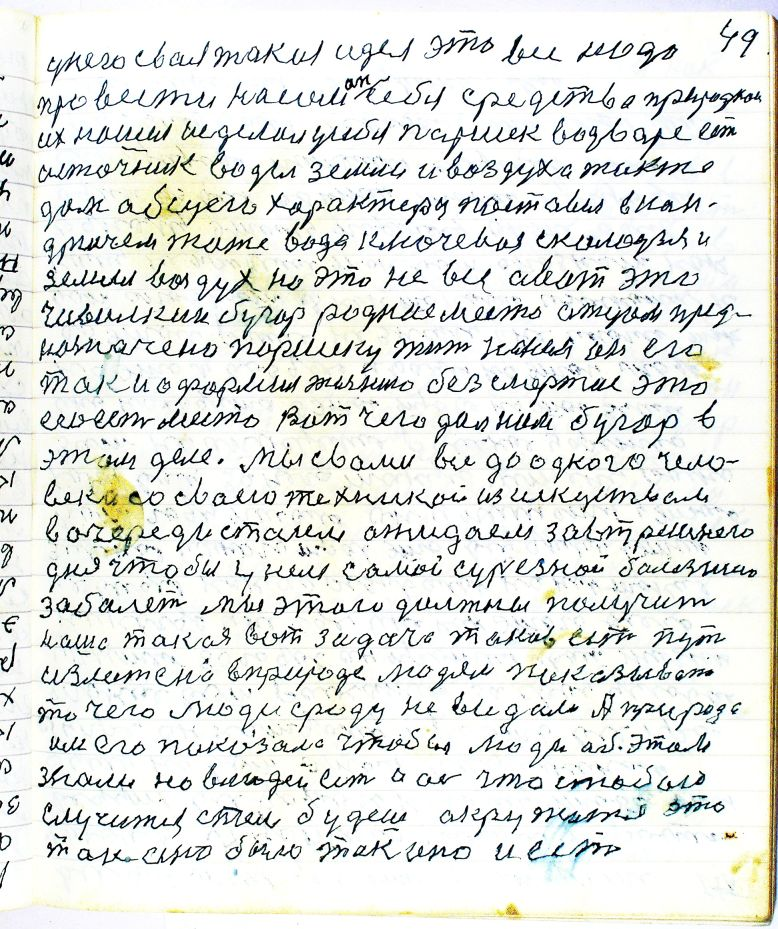 49
у него свая такая идея это вси нада
провести на сам ан себя средства природнаи
их нашел и сделал у себя паршек в одваре ест
источник вады земли и воздуха также
дом абсщего характеру поставил в кан-
дрючем тоже вада ключевая с калодзя и
земля воздух но это не вси а вот это
чивилкин бугор родное место отцом пред-
назначено паршику жит начал он его
так и оформил жизнию без смертие это
его ест место вот чего дал нам бугор в
этом деле. Мы свами вси до одного чело-
века со своею техникой и искуством
в очереди стаем ожидаем завтрешнего
дня чтобы у нем самой сурезной болезнию
заболет мы этого должны получит
наша такая вот задача таков ест пут
изложено в природе людям показыват
то чего люди сроду не видали А природа
им его показала чтобы люди аб этом
знали но в людей ест а ой что с тобою
случится с тем будеш окружатся это
так оно было так оно и есть